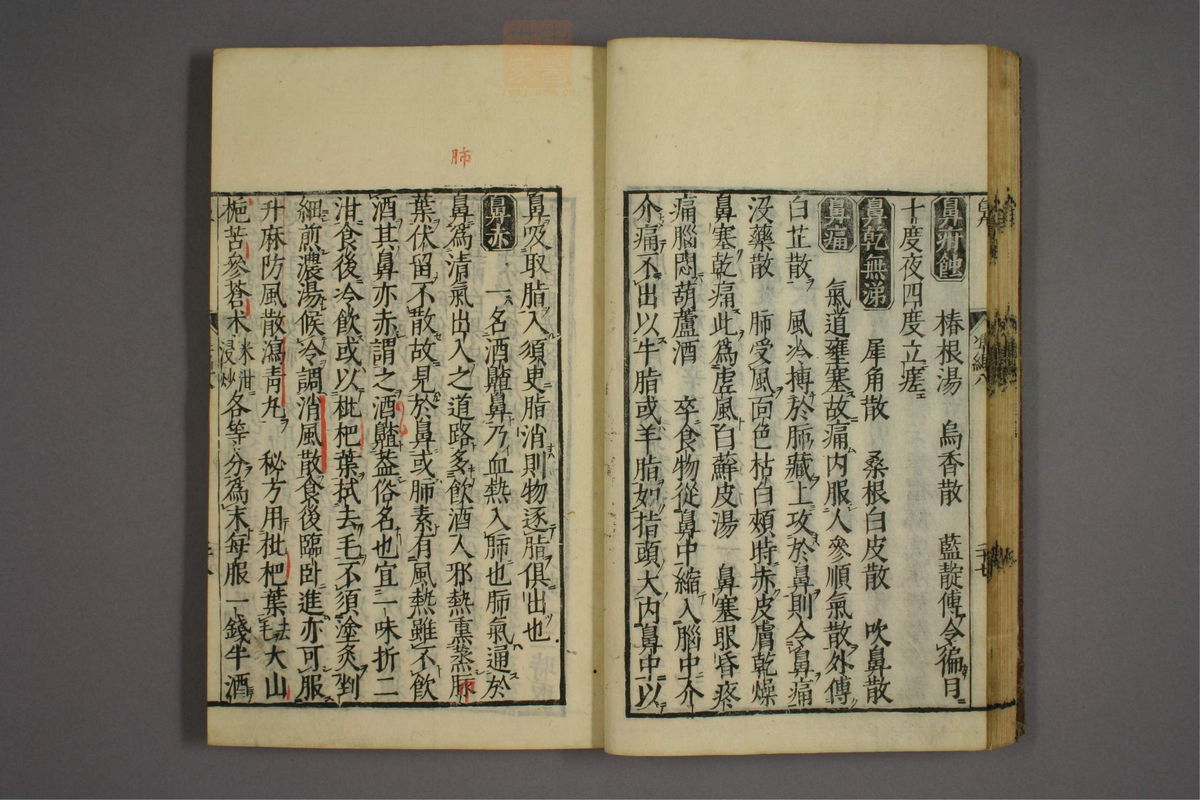 鼻疳蝕　椿根湯　烏香散　藍靛傅令徧日
十度夜四度立瘥
鼻乾無涕　犀角散　桑根白皮散　吹鼻散
鼻痛　氣道壅塞故痛内服人參順氣散外傅
白芷散　風冷搏於肺藏上攻於鼻則令鼻痛
没藥散　肺受風面色枯白頰時赤皮膚乾燥
鼻塞乾痛此爲虗風白蘚皮湯　鼻塞眼昏疼
痛腦悶葫蘆酒　卒食物從鼻中縮入腦中介
介痛不出以牛脂或羊脂如指頭大内鼻中以
鼻吸取脂入須臾脂消則物逐脂俱出也
鼻赤　一名酒齄鼻乃血熱入肺也肺氣通於
鼻爲清氣出入之道路多飲酒人邪熱熏蒸肺
葉伏留不散故見於鼻或肺素有風熱雖不飲
酒其鼻亦赤謂之酒齄葢俗名也宜一味折二
泔食後冷飲或以枇杷葉拭去毛不須塗炙剉
細煎濃湯候冷調消風散食後臨卧進亦可服
升麻防風散瀉青丸　秘方用枇杷葉去毛大山
梔苦參蒼朮米泔浸炒各等分爲末每服一錢半酒
肺
二十七